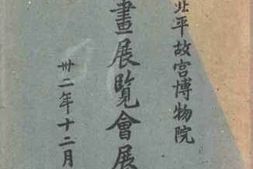 北平故宮博物院
畫展覽會展
卅二年十二月